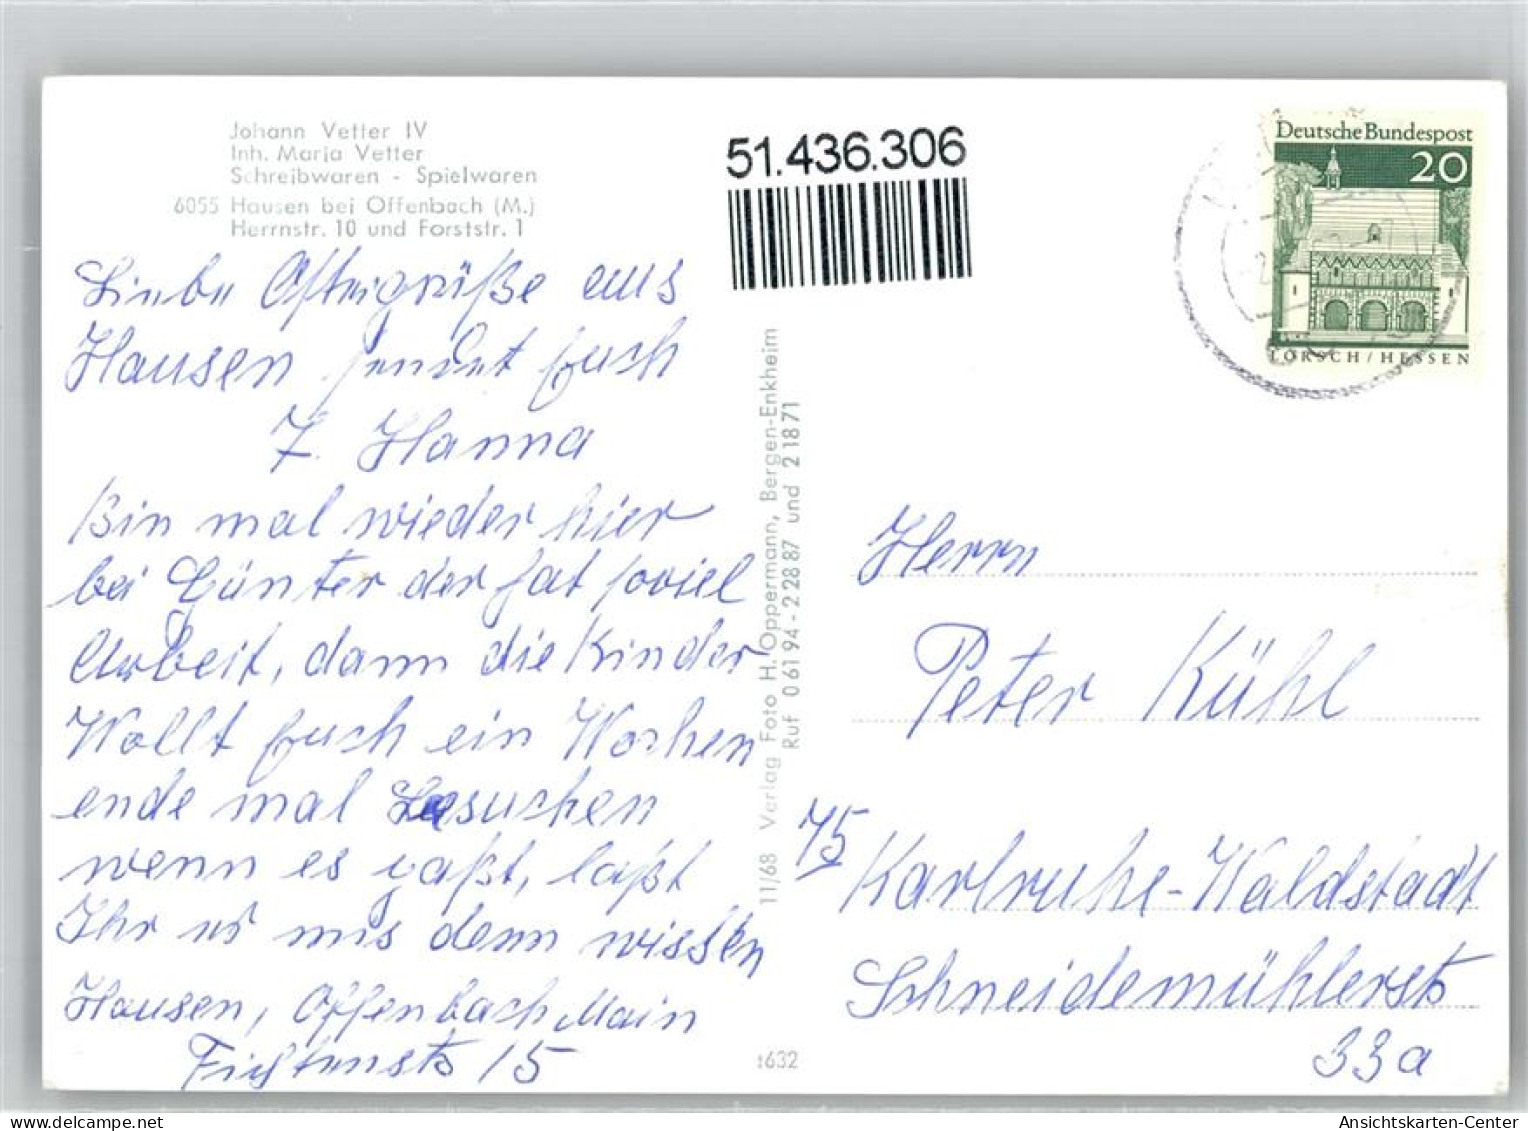 Johann Vetter IV
Inh. Maria Vetter
Schreibwaren - Spielwaren
6055 Hausen bei Offenbach (M.)
Herrnstr. 10 und Forststr. 1
51.436.306
Deutsche Bundespost
20
LORSCH/HESSEN
Liebe Ostergrüße aus
Hausen sendet Euch
T. Hanna
Bin mal wieder hier
bei Günter der hat soviel
Arbeit, dann die Kinder
Wollt Euch ein Wochen
ende mal besuchen
wenn es paßt, laßt
Ihr es mis denn wissen
Hausen, Offenbach Main
Fichtenstr 15
11/68 Verlag Foto H. Oppermann, Bergen-Enkheim
Ruf 0 61 94 - 2 28 87 und 2 18 71
1632
Herrn
Peter Kühl
75
Karlruhe-Waldstadt
Schneidemühlerstr
33a
Ansichtskarten-Center